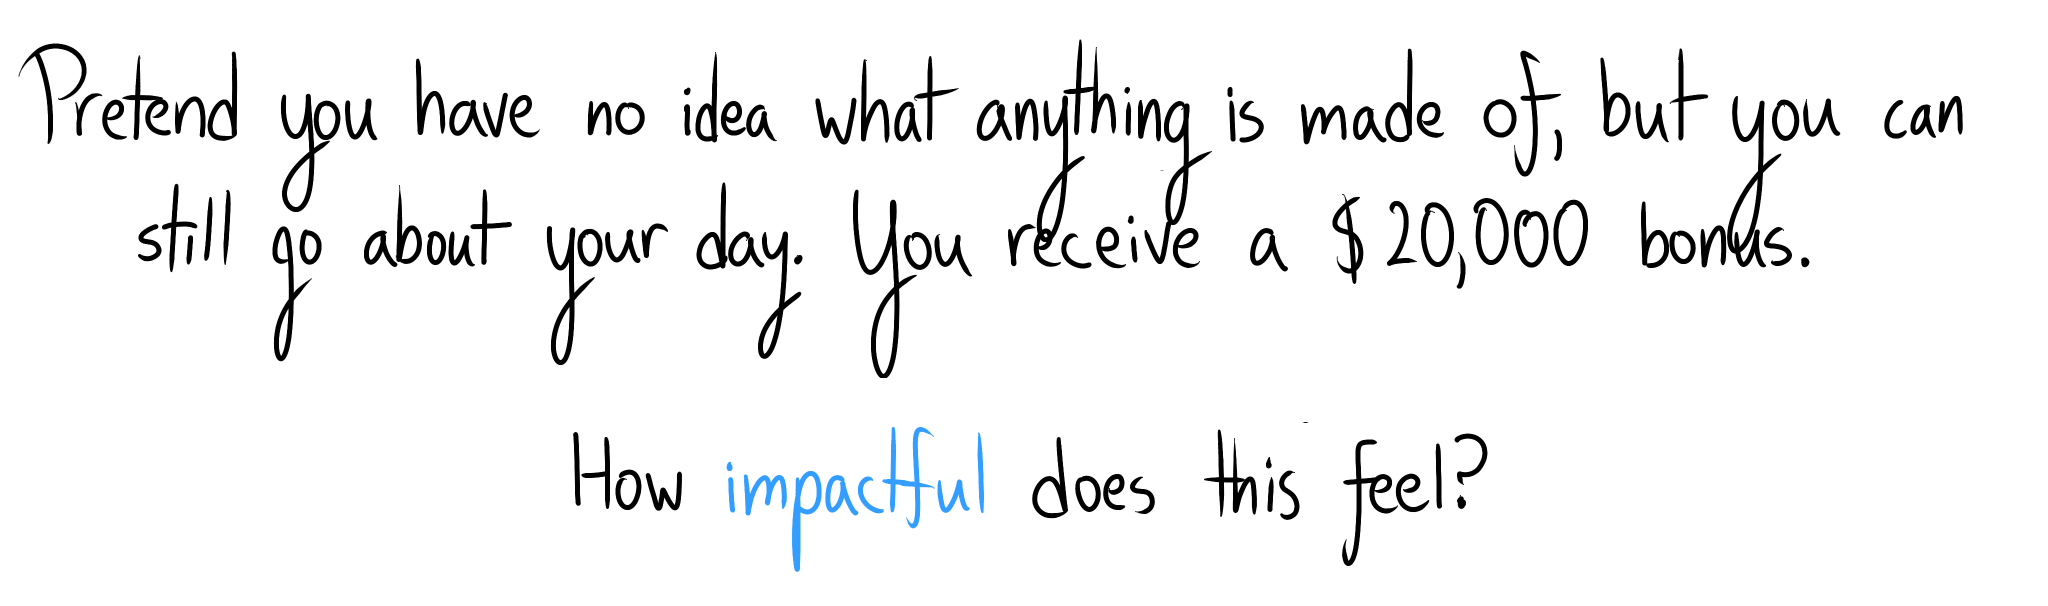 Pretend you have no idea what anything is made of, but you can
still go about your day. You receive a $20,000 bonus.
How impactful does this feel?